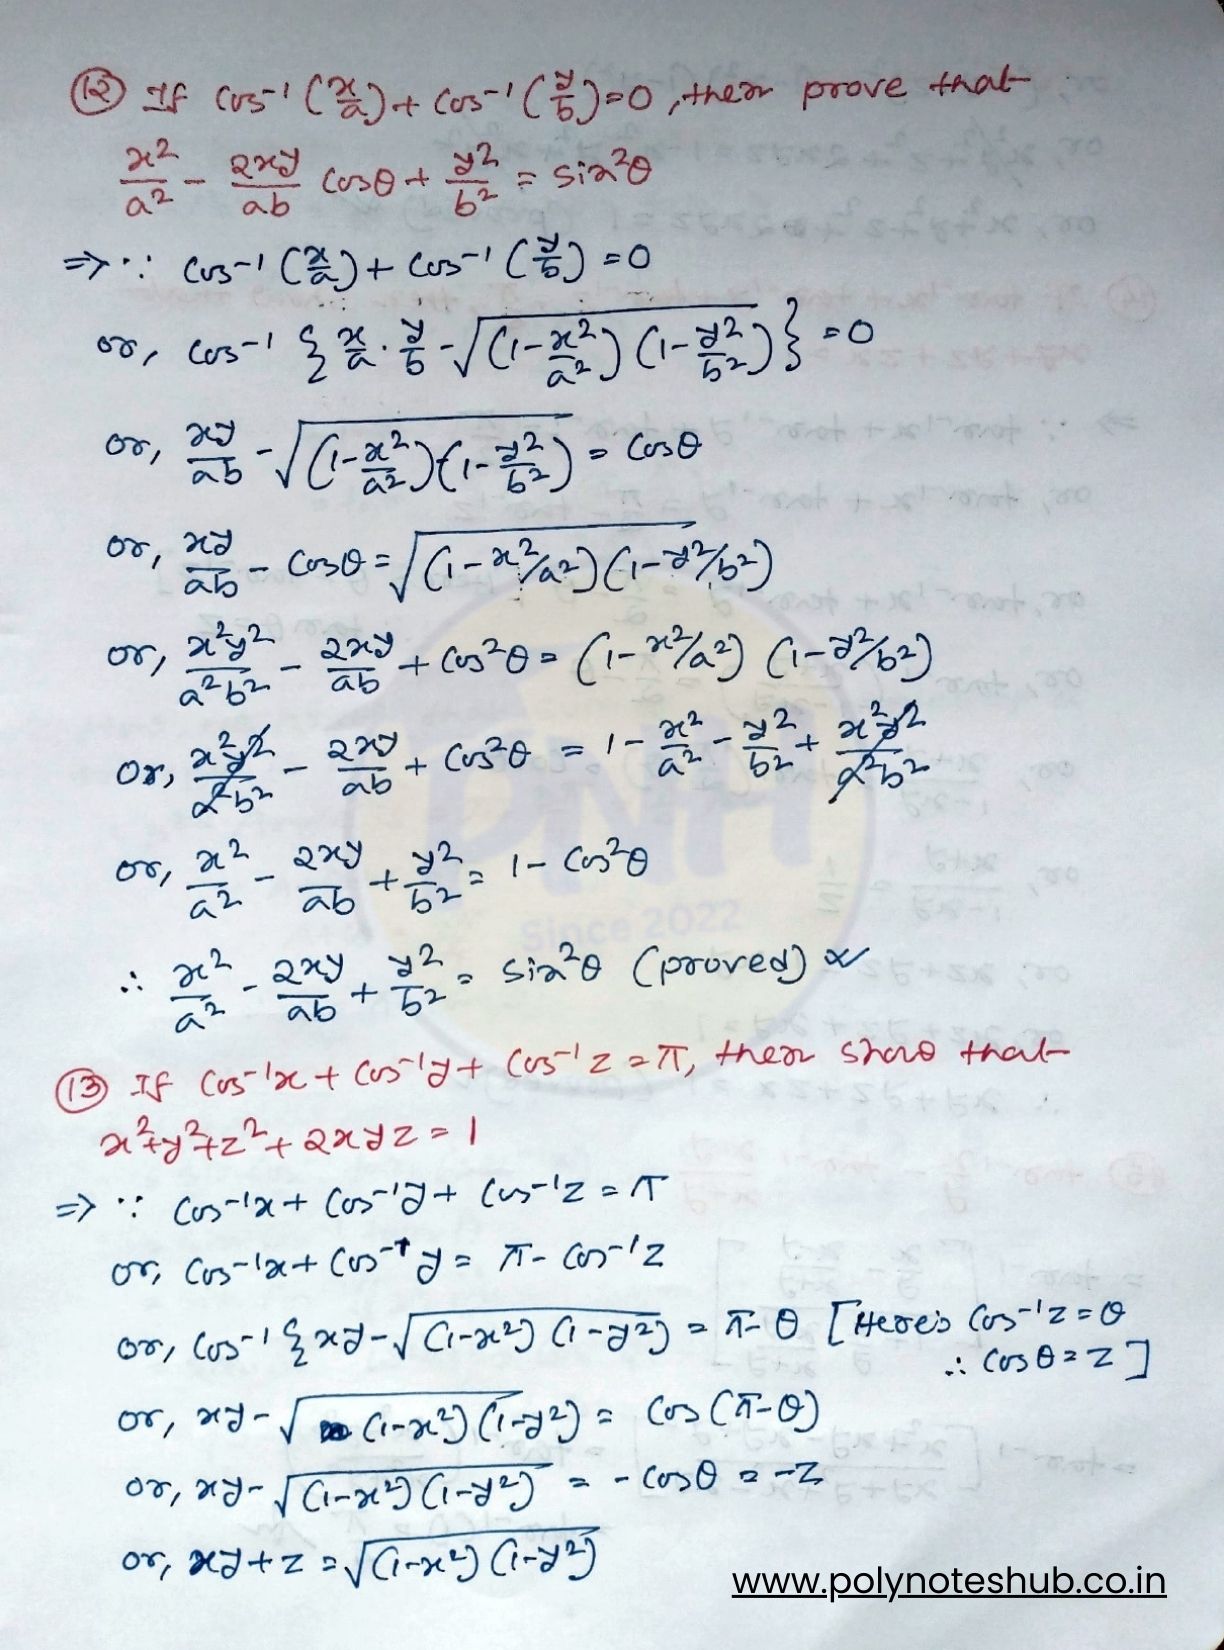 (12) If cos⁻¹(x/a) + cos⁻¹(y/b) = 0, then prove that
x²/a² - 2xy/ab cosθ + y²/b² = sin²θ
=> ∵ cos⁻¹(x/a) + cos⁻¹(y/b) = 0
or, cos⁻¹ {x/a · y/b - √(1 - x²/a²)(1 - y²/b²)} = 0
or, xy/ab - √(1 - x²/a²)(1 - y²/b²) = cosθ
or, xy/ab - cosθ = √(1 - x²/a²)(1 - y²/b²)
or, x²y²/a²b² - 2xy/ab + cos²θ = (1 - x²/a²) (1 - y²/b²)
or, x²y²/a²b² - 2xy/ab + cos²θ = 1 - x²/a² - y²/b² + x²y²/a²b²
or, x²/a² - 2xy/ab + y²/b² = 1 - cos²θ
∴ x²/a² - 2xy/ab + y²/b² = sin²θ (proved)
(13) If cos⁻¹x + cos⁻¹y + cos⁻¹z = π, then show that
x² + y² + z² + 2xyz = 1
=> ∵ cos⁻¹x + cos⁻¹y + cos⁻¹z = π
or, cos⁻¹x + cos⁻¹y = π - cos⁻¹z
or, cos⁻¹ {xy - √(1-x²) (1-y²)} = π - θ [Here's cos⁻¹z = θ
∴ cosθ = z]
or, xy - √(1-x²) (1-y²) = cos(π - θ)
or, xy - √(1-x²)(1-y²) = - cosθ = -z
or, xy + z = √(1-x²) (1-y²)
PNH
Since 2022
www.polynoteshub.co.in